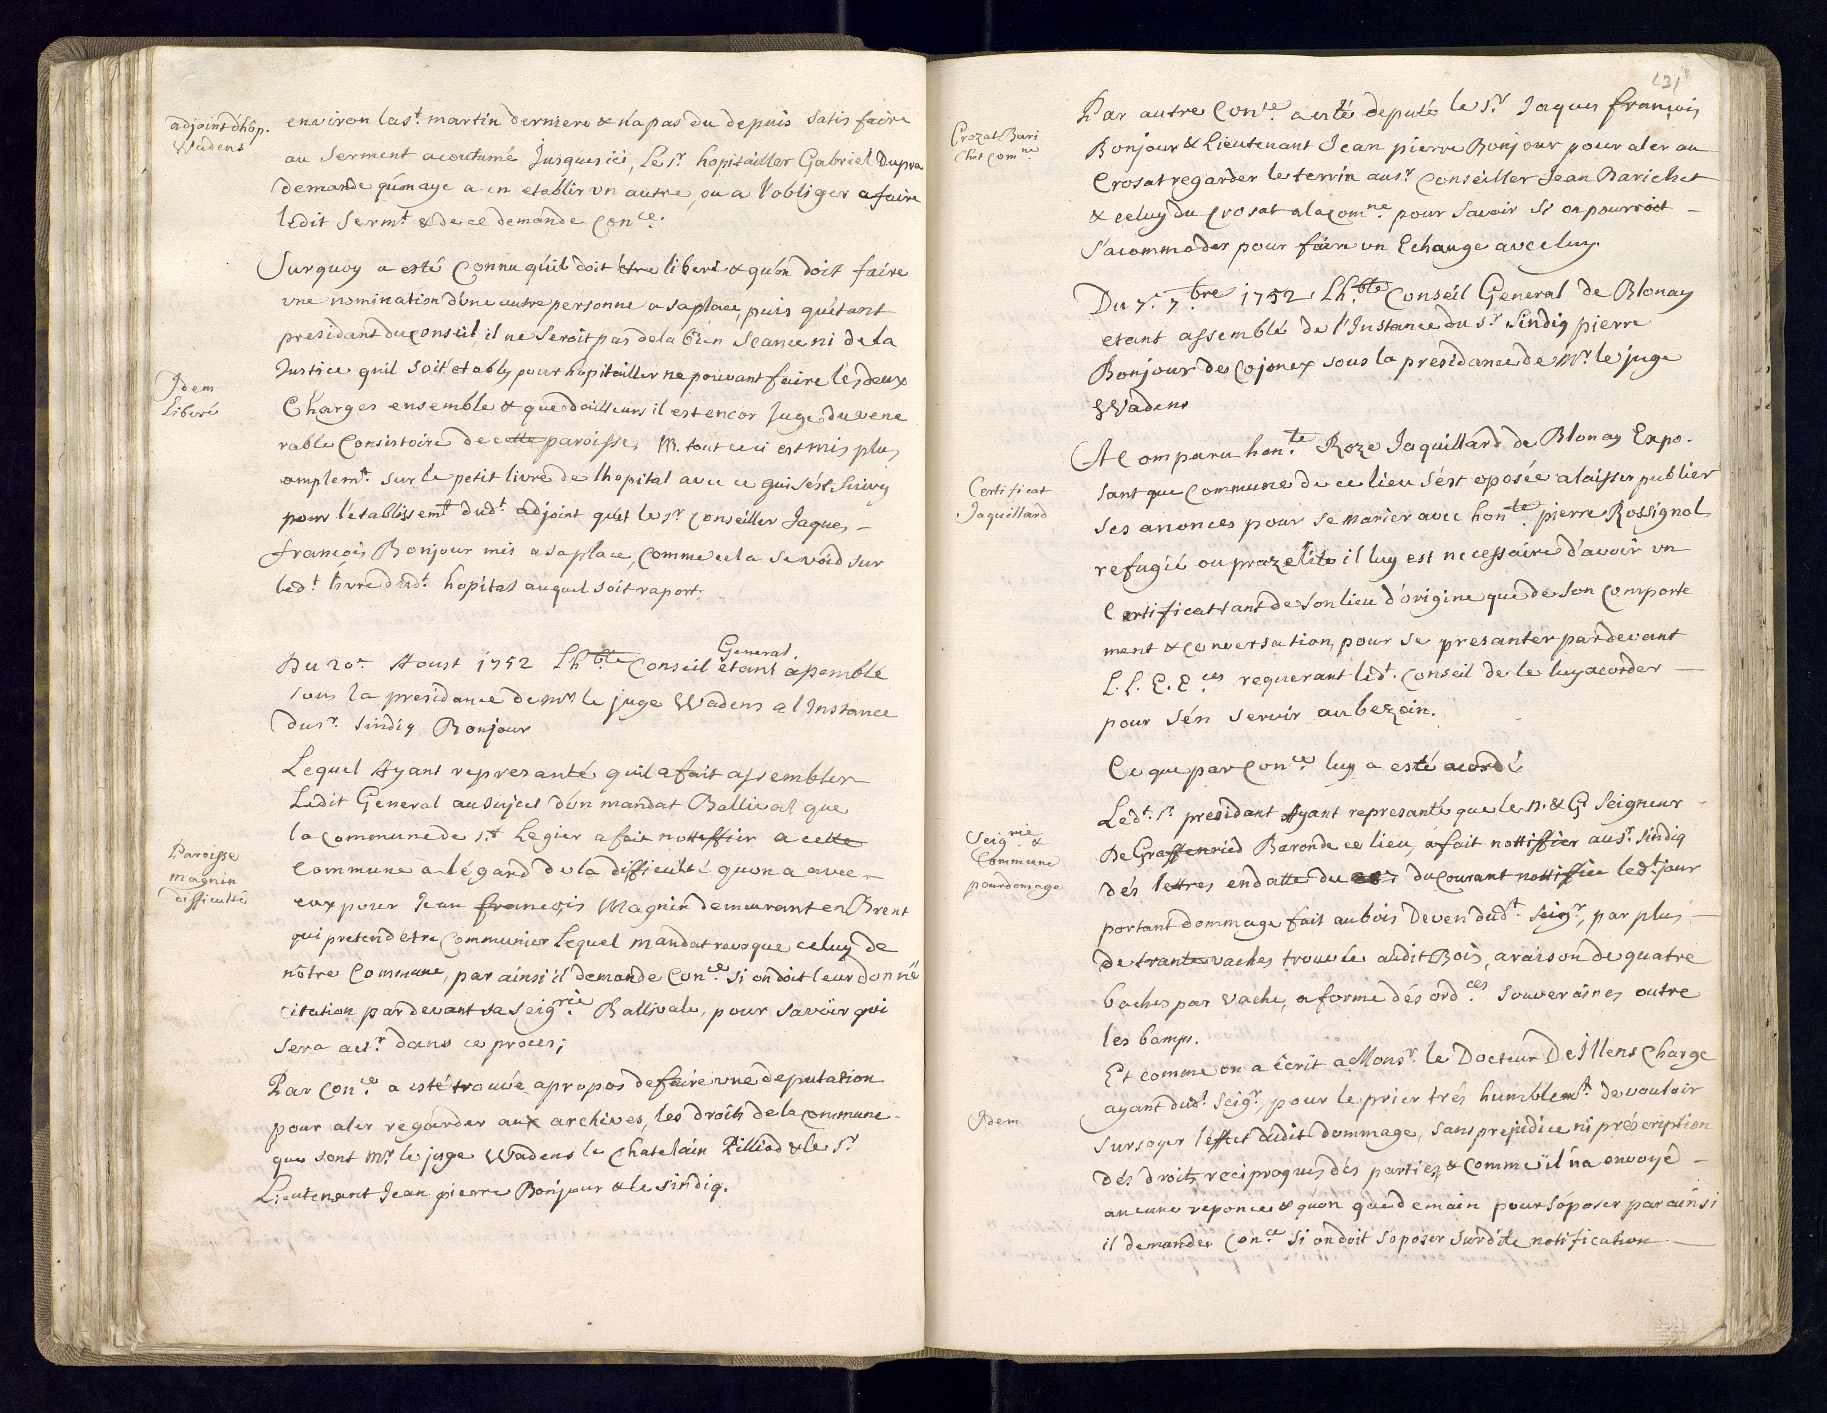 adjoint d'hôp.
Wadens
environ la st. martin derniere & n'a pas du depuis satis faire
au serment acoutumé Jusques ici, Le sr. hopitailler Gabriel Dupra
demande qu'on aye a en etablir un autre, ou a l'obliger a faire
ledit serm.t & de ce demande Con.ce.
Surquoy a esté Connu qu'il doit être liberé & qu'on doit faire
une nomination d'une autre personne a sa place, puis qu'étant
presidant du conseil il ne seroit pas de la bien seance ni de la
Justice quil soit etably pour hopitailler ne pouvant faire les deux
Idem
Liberé
Charges ensemble & que dailleurs il est encor Juge du vene
rable Consistoire de cette paroisse, tout ceci est mis plus
amplem.t sur le petit livre de lhopital avec ce qui s'ést suivy
pour l'établissem.t dud.t adjoint qu'ét le sr. conseiller Jaques
françois Bonjour mis a sa place, comme cela se void sur
led.t livre dud.t hopital auquel soit raport.
Du 20e. Aoust 1752 Lh.ble Conseil General etant assemblé
sous la presidance de mr. le juge Wadens a l'Instance
du sr. sindiq Bonjour
Lequel Ayant represanté quil a fait assembler
Ledit General au sujet d'un mandat Ballival que
la commune de st. Legier a fait nottiffier a cette
Paroisse
magnin
difficulté
Commune a l'égard de la difficulté quon a avec
eux pour Jean françois Magnin demeurant en Brent
qui pretend etre Communier Lequel mandat revoque celuy de
nôtre Commune, par ainsi il demande Con.ce si on doit leur donné
citation par devant sa seig.rie Ballivale, pour savoir qui
sera act.r dans ce proces;
Par Con.ce a esté trouvé apropos de faire une deputation
pour aler regarder aux archives, les droits de la commune
que sont Mr. le juge Wadens le Chatelain Pilliod & le sr.
Lieutenant Jean pierre Bonjour & le sindiq.
131
Crozat Bari
chet com.ne
Par autre Con.ce a esté deputé le sr. Jaques françois
Bonjour & Lieutenant Jean pierre Bonjour pour aler au
Crosat regarder le terrin au sr. Conseiller Jean Barichet
& celuy du Crosat a la com.ne pour savoir si on pourroit
s'acommoder pour faire un Echange avec luy.
Du 7e. 7.bre 1752 Lh.ble Conseil General de Blonay
etant assemblé de l'Instance du sr. Sindiq pierre
Bonjour des Cojonex sous la presidance de Mr. le juge
Wadens
A Comparu hon.te Roze Jaquillard de Blonay Expo-
Certificat
Jaquillard
sant que Commune de ce lieu s'ést oposée a laisser publier
ses anonces pour se marier avec hon.te pierre Rossignol
refugié ou prazelite il luy est necessaire d'avoir un
Certificat tant de son lieu d'origine que de son comporte
ment & conversation, pour se presanter par devant
L. L. E. E.ces requerant led.t conseil de le luy acorder
pour s'én servir au bezoin.
Ce que par Con.ce luy a esté acordé
Led.t sr. presidant Ayant represanté que le N. & G. Seigneur
Seig.rie &
Commune
pour domage
De Graffenried Baron de ce lieu, a fait nottiffier au sr. sindiq
dés lettres en datte du 7 du courant nottiffiée led.t jour
portant dommage fait au bois Deven dud.t seig.r, par plus
de trante vaches trouvée audit Bois, a raison de quatre
baches par vache, a forme dés ord.ces souveraines outre
les bamps.
Idem
Et comme on a écrit a Mons.r le Docteur De Illens Charge
ayant dud.t seig.r pour le prier trés humblem.t de vouloir
sursoyer l'éffet dudit dommage, sans prejudice ni préscription
dés droits reciproques dés parties, & comme il n'a envoyé
aucune reponce & quon que demain pour s'oposer par ainsi
il demande Con.ce si on doit s'oposer surdite notification